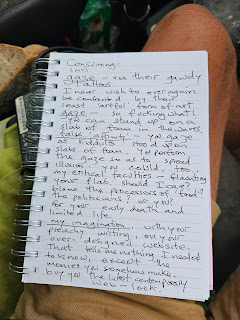 Consuming:
gaze - via their gawdy
tattoos.
I never wish to ever again
be confronted by their
least artful form of art.
gaze - so fucking what!
you can stand up on a
slab of foam in the waves,
false affinity you gaze
at kiddults stood up on
slabs of foam. You perform
the gaze so as to spread
illusion, you cajole, too,
my critical faculties - flaunting
your flab, should I care?
blame the processors of food?
the politicians? or you?
for your early death and
limited life.
my imagination, with your
preachy writing, on your
over-designed website.
That tells me nothing I needed
to know, except
monies you somehow make.
buy you that contemporary
look